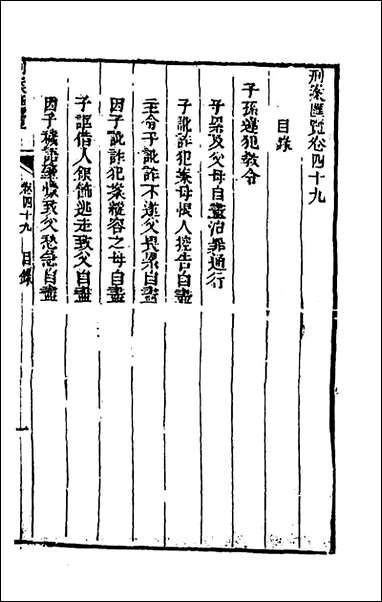 刑案匯覽卷四十九
目錄
子孫違犯教令
子累及父母自盡治罪通行
子訛詐犯案母恨人控告自盡
主令子訛詐不遂父畏累自盡
因子訛詐犯案縱容之母自盡
子誆借人銀飾逃走致父自盡
因子穢語致父愁急自盡
刑案匯覽
卷四十九 目錄